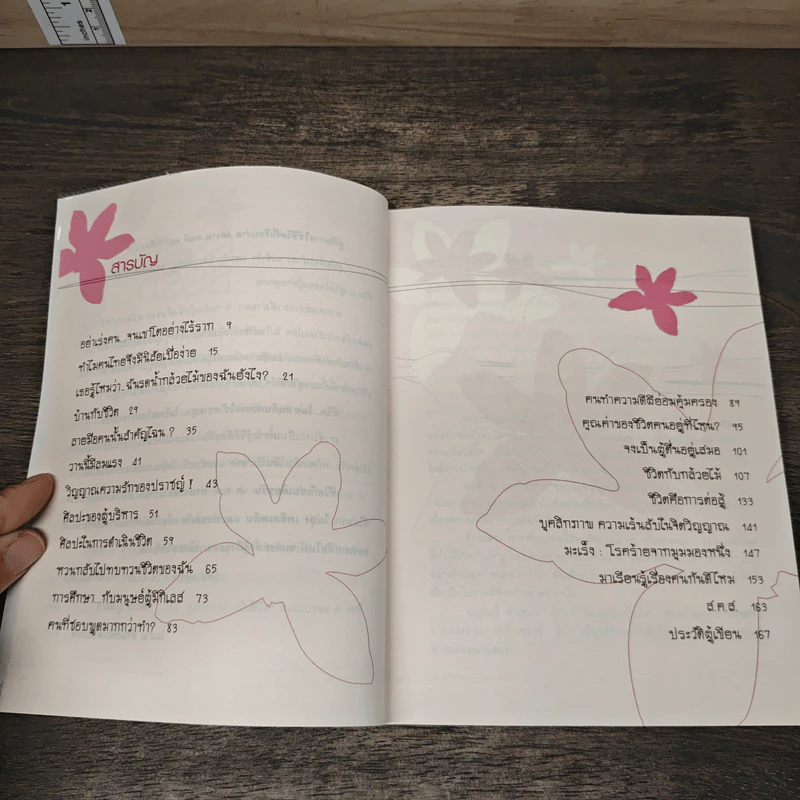 สารบัญ
อย่าเร่งคน...จนเขาโตอย่างไร้ราก 9
ทำไมคนไทยจึงมีนิสัยเบื่อง่าย 15
เธอรู้ไหมว่า..ฉันรดน้ำกล้วยไม้ของฉันยังไง? 21
บ้านกับชีวิต 29
ลายมือคนนั้นสำคัญไฉน ? 35
วานนี้มีลมแรง 41
วิญญาณความรักของปราชญ์ ! 43
ศิลปะของผู้บริหาร 51
ศิลปะในการดำเนินชีวิต 59
หวนกลับไปทบทวนชีวิตของฉัน 65
การศึกษา...กับมนุษย์ผู้มีกิเลส 73
คนที่ชอบพูดมากกว่าทำ? 83
คนทำความดีมีออมคุ้มครอง 89
คุณค่าของชีวิตคนอยู่ที่ไหน? 95
จงเป็นผู้ตื่นอยู่เสมอ 101
ชีวิตกับกล้วยไม้ 107
ชีวิตคือการต่อสู้ 133
บุคลิกภาพ ความเร้นลับในจิตวิญญาณ 141
มะเร็ง : โรคร้ายจากมุมมองหนึ่ง 147
มาเรียนรู้เรื่องคนกันดีไหม 153
ส.ค.ส. 163
ประวัติผู้เขียน 167
INCHES
1
2